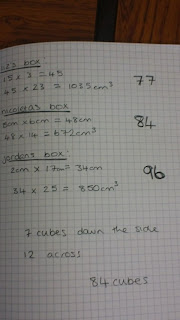 box:
15 x 3 = 45
77
45 x 23 = 1035cm³
box
8cm x 6cm = 48cm
84
48 x 14 = 672cm³
box:
2cm x 17cm = 34cm
96
34 x 25 = 850cm³
7 cubes down the side
12 across
84 cubes